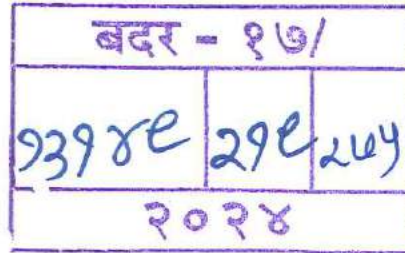 बदर - १७/
१३१४९ २१९
२०२४